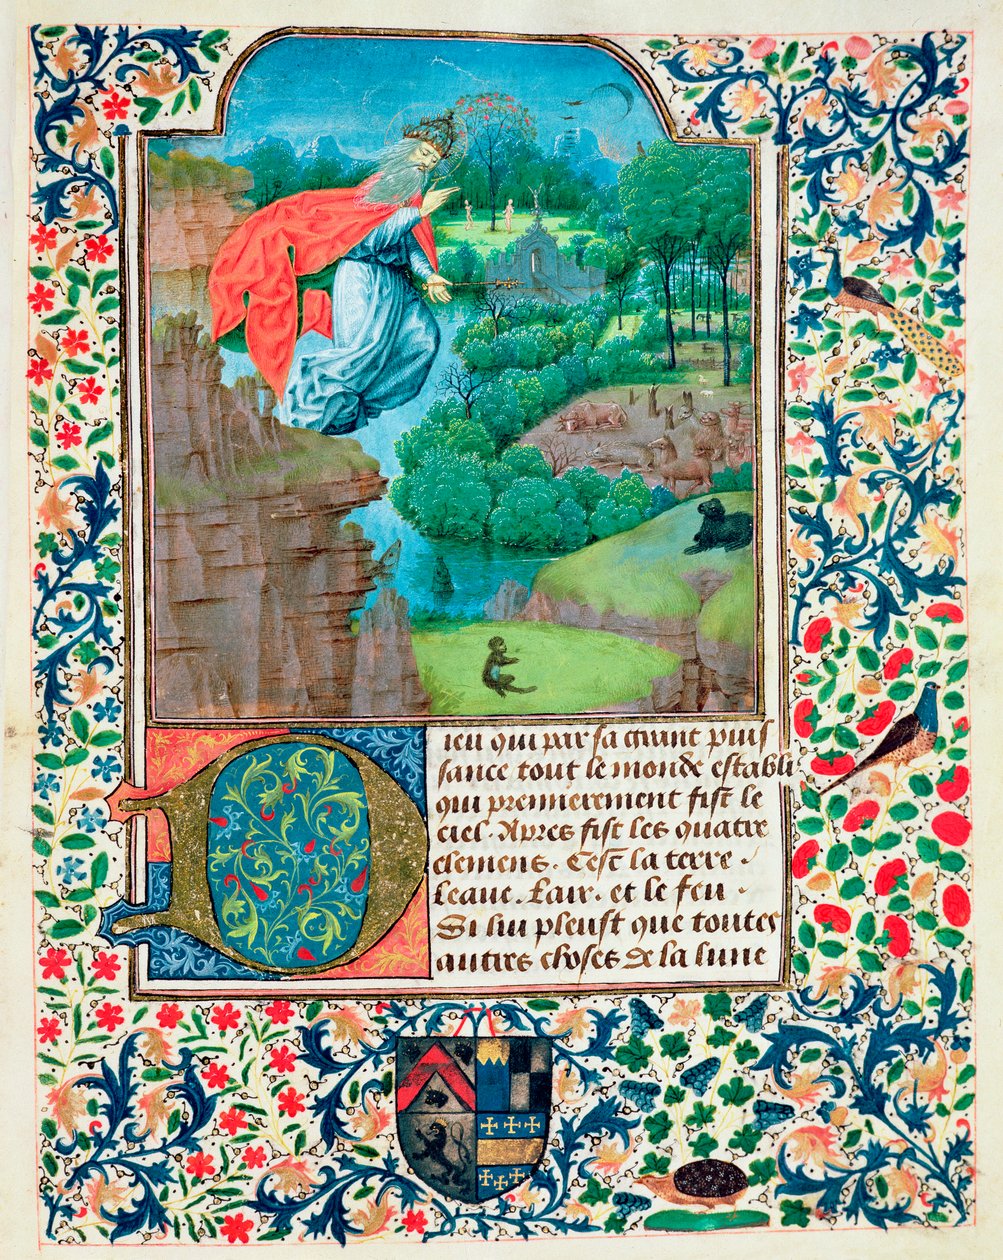 Dieu qui par sa grant puis
sance tout le monde establi
qui premierement fist le
ciel. Apres fist les quatre
elemens. Cest la terre.
leaue. lair. et le feu.
Si lui pleust que toutes
autres choses de la lune